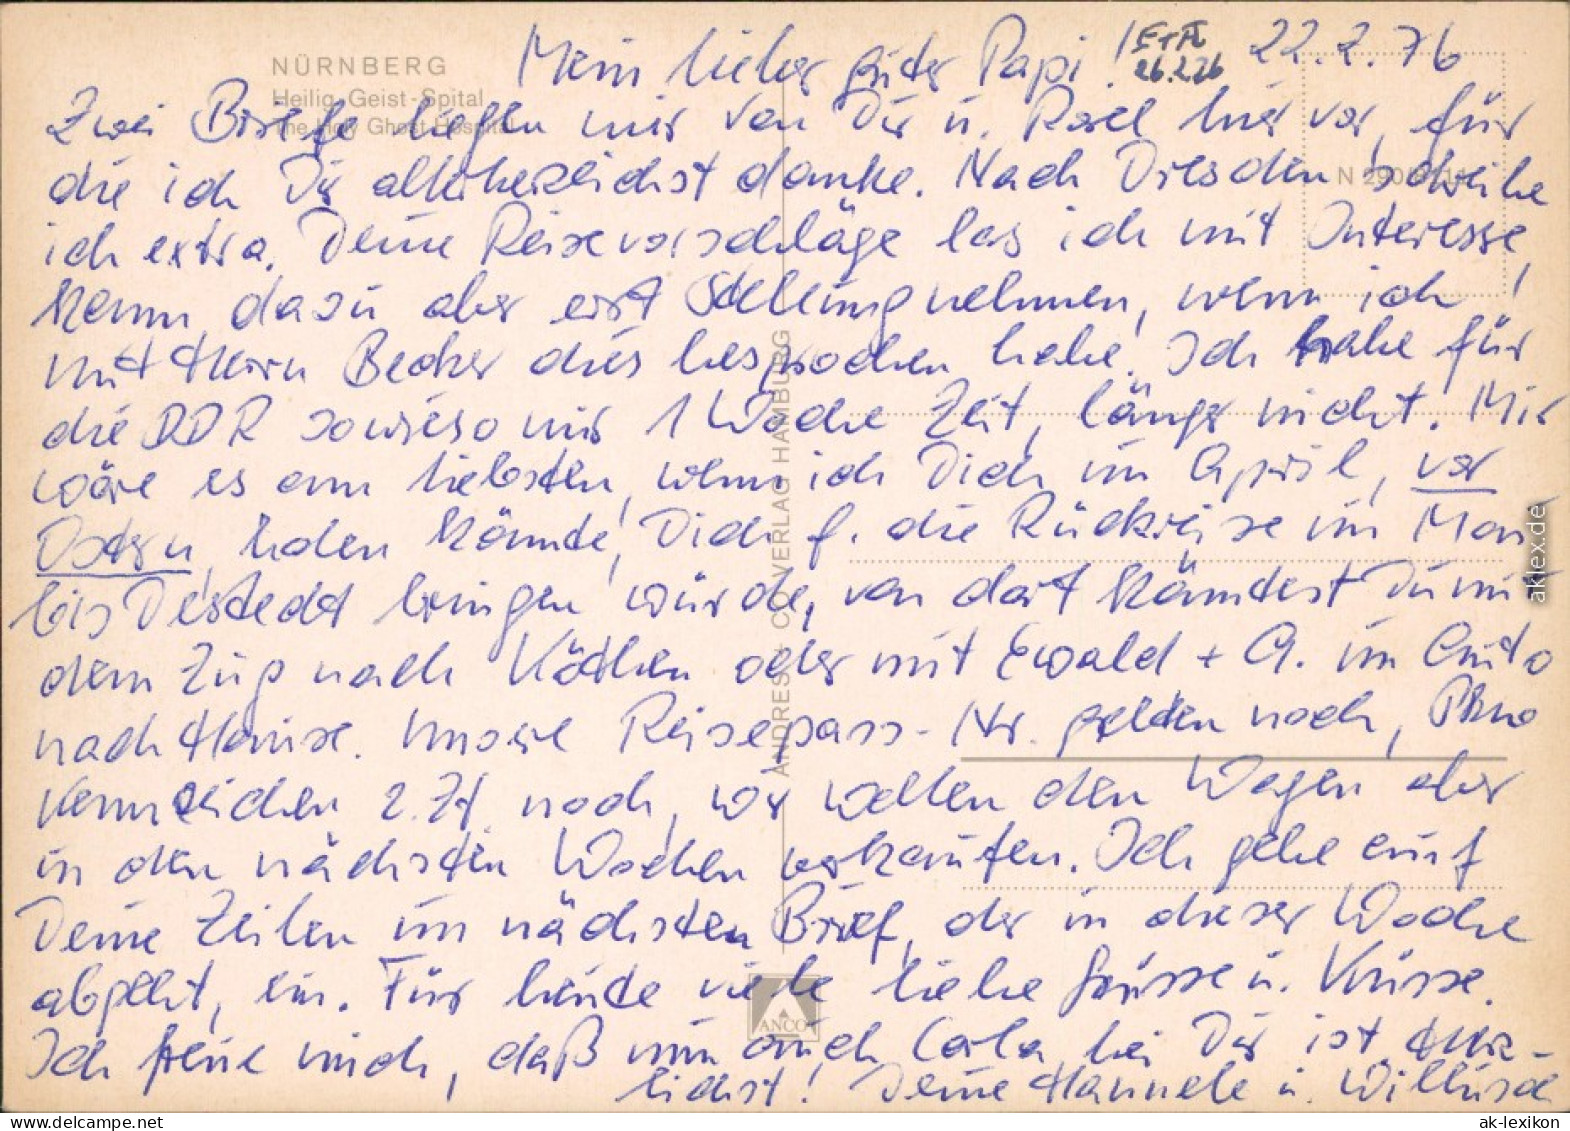 NÜRNBERG
Heilig-Geist-Spital
The Holy Ghost Hospital
Mein lieber guter Papi! 22.2.76
26.2.76
Zwei Briefe liegen mir von Dir u. Rosel hier vor, für
die ich Dir allerherzlichst danke. Nach Dresden schreibe
ich extra. Deine Reisevorschläge las ich mit Interesse,
kann dazu aber erst Stellung nehmen, wenn ich
mit Herrn Becker dies besprochen habe. Ich habe für
die DDR sowieso nur 1 Woche Zeit, länger nicht. Mir
wäre es am liebsten, wenn ich Dich im April, vor
Ostern, holen könnte, Dich f. die Rückreise im Mai
bis Destedt bringen würde, von dort könntest Du mit
dem Zug nach Köthen oder mit Ewald + A. im Auto
nach Hause. Unsere Reisepass-Nr. gelten noch, PKW
Kennzeichen z.Zt. noch, wir wollen den Wagen aber
in den nächsten Wochen verkaufen. Ich gehe auf
Deine Zeilen im nächsten Brief, der in dieser Woche
abgeht, ein. Für heute viele liebe Grüsse u. Küsse.
Ich freue mich, daß nun auch Carla bei Dir ist. Herz-
lichst! Deine Hannele u.
ANDRES + CO VERLAG HAMBURG
ANCO
aklex.de
ak-lexikon